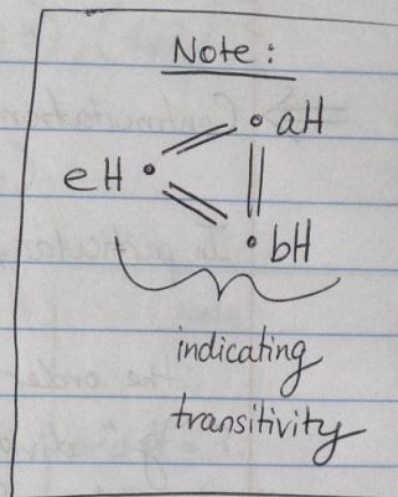 Note:
aH
eH
bH
indicating
transitivity